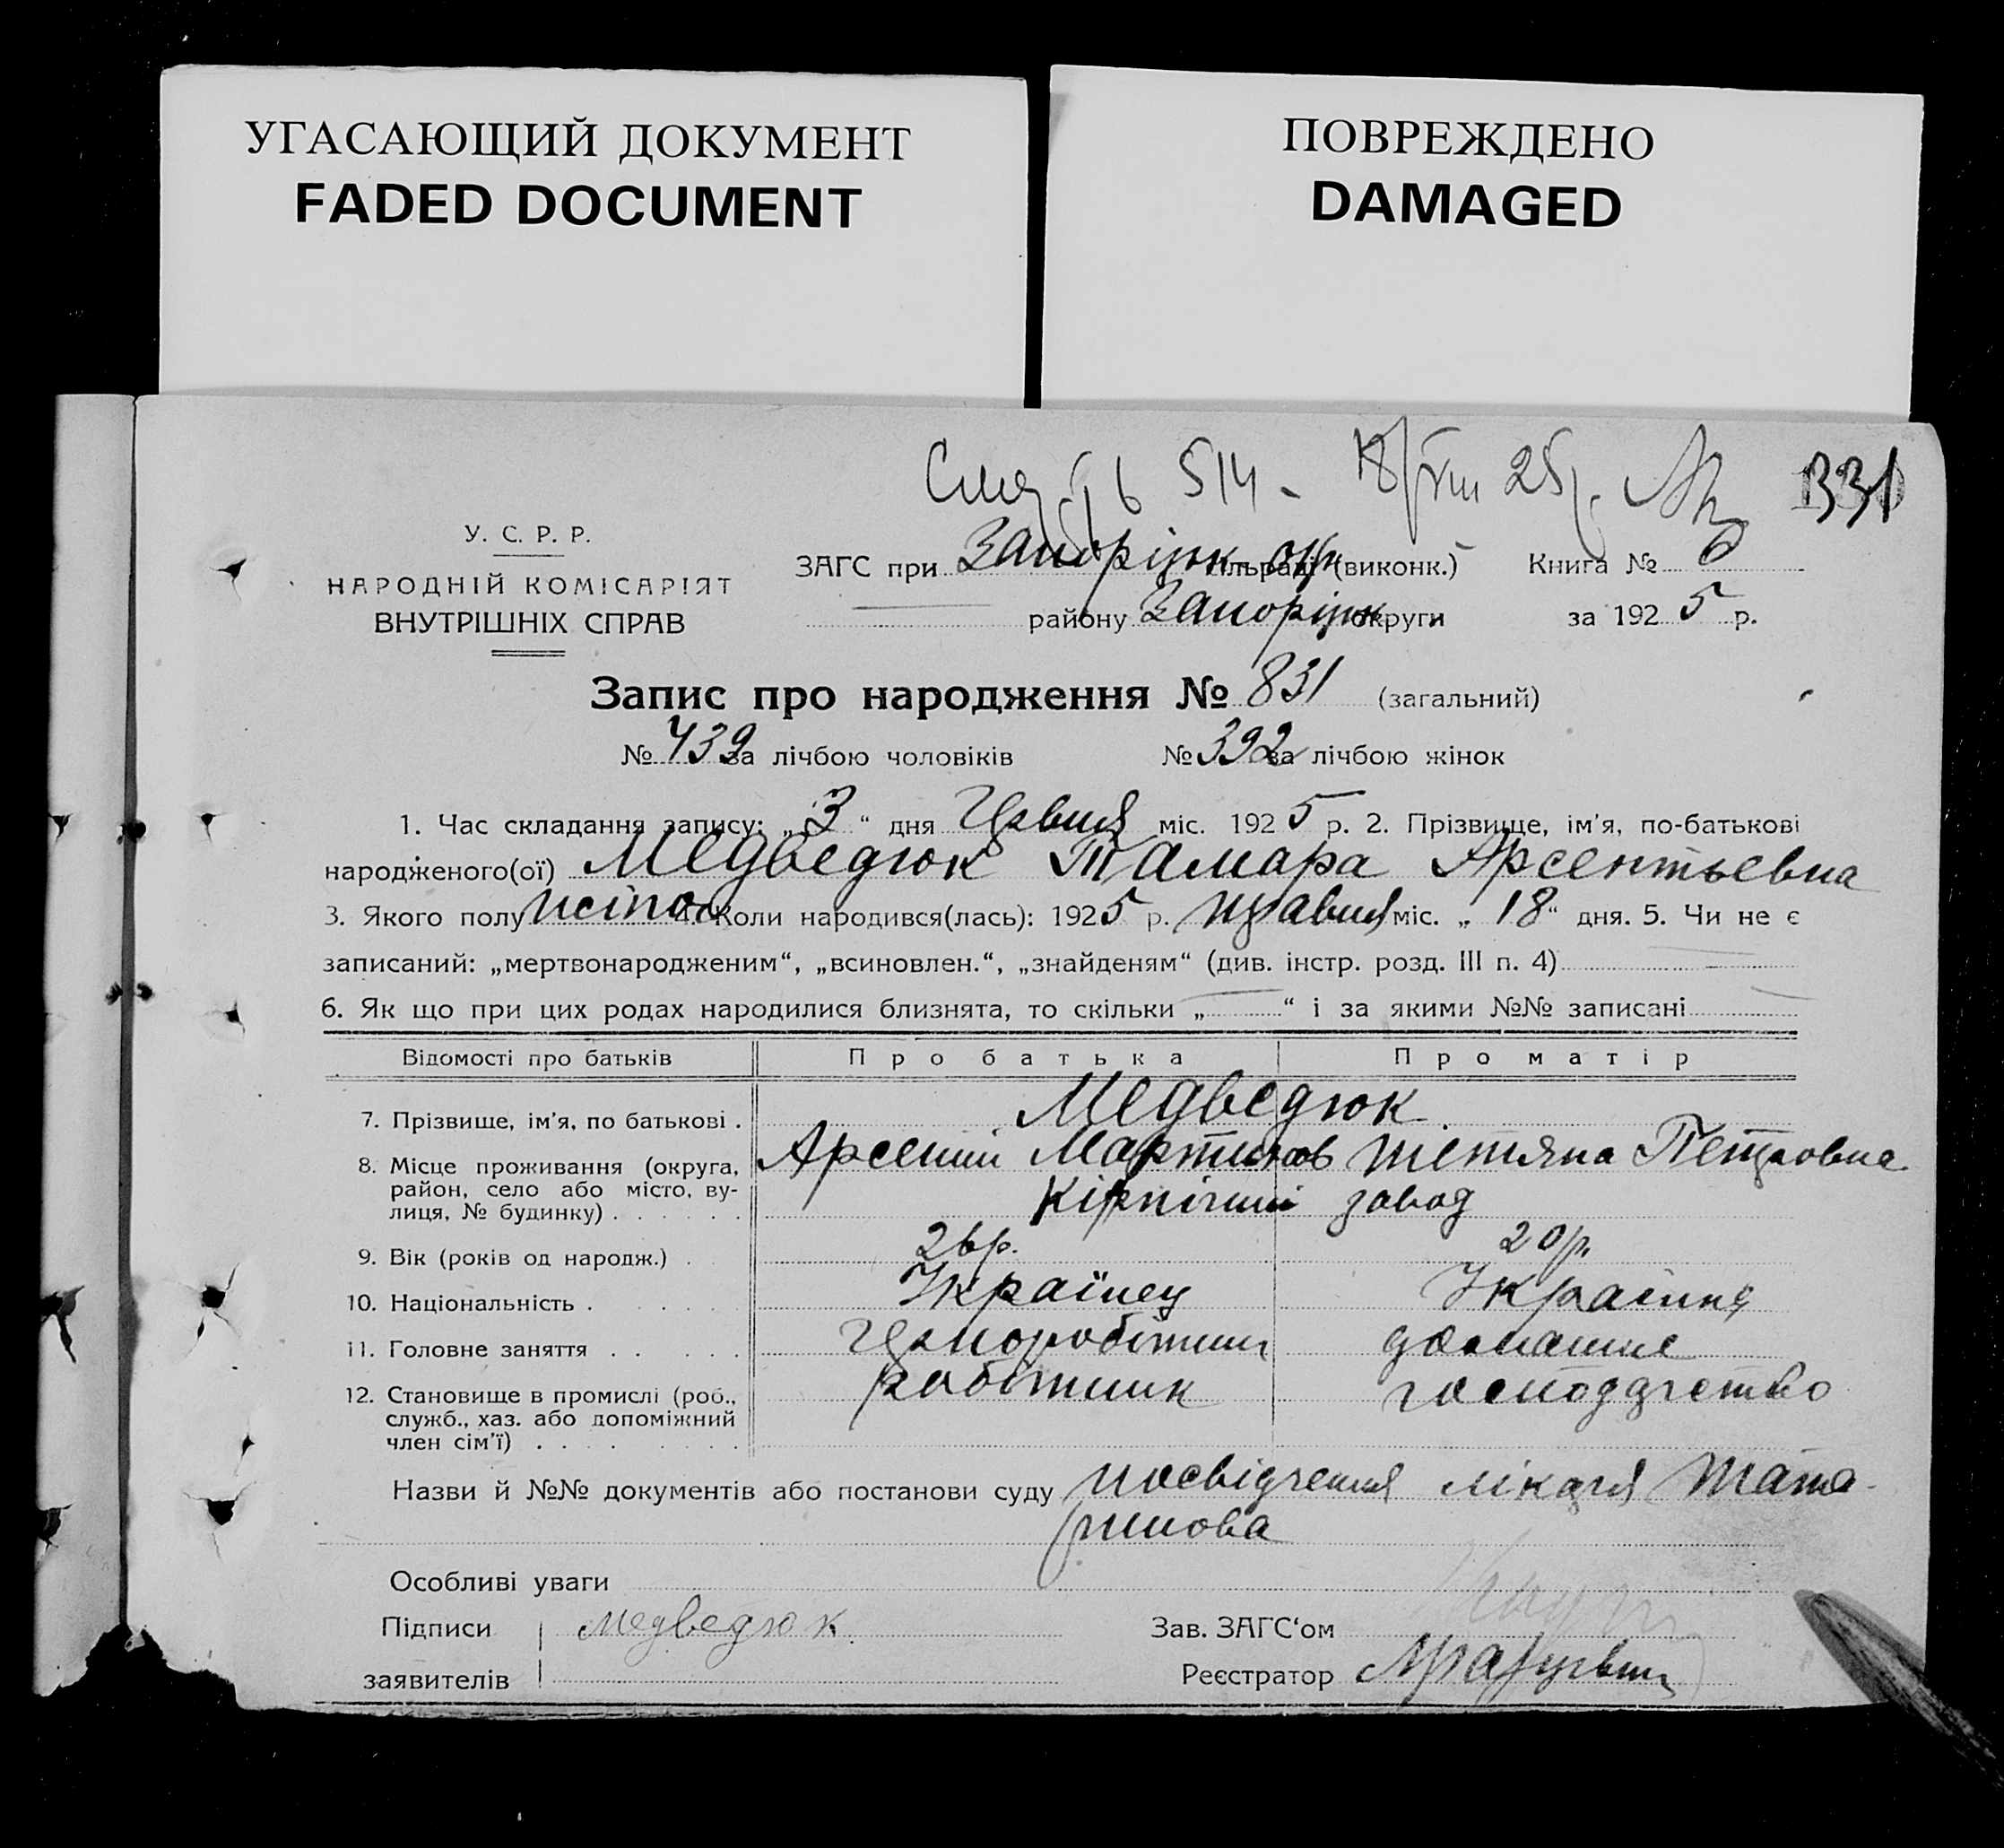 УГАСАЮЩИЙ ДОКУМЕНТ
FADED DOCUMENT
ПОВРЕЖДЕНО
DAMAGED
514 - 18/VIII 25
331
У. С. Р. Р.
НАРОДНІЙ КОМІСАРІЯТ
ВНУТРІШНІХ СПРАВ
ЗАГС при Запоріжк. окр сільраді (виконк.) Книга № 6
району Запоріжк округи за 1925 р.
Запис про народження № 831 (загальний)
№ 439 за лічбою чоловіків № 392 за лічбою жінок
1. Час складання запису: „3“ дня Червня міс. 1925 р. 2. Прізвище, ім'я, по-батькові
народженого(ої) Медведюк Тамара Арсентьевна
3. Якого полу 4. Коли народився(лась): 1925 р. травня міс. „18“ дня. 5. Чи не є
записаний: „мертвонародженим“, „всиновлен.“, „знайденям“ (див. інстр. розд. III п. 4)
6. Як що при цих родах народилися близнята, то скільки „ “ і за якими №№ записані
Відомості про батьків Про батька Про матір
7. Прізвише, ім'я, по батькові . Медведюк
8. Місце проживання (округа, Арсений Мартинов Тетяна Петровна
район, село або місто, ву- Кірпічний завод
лиця, № будинку)
9. Вік (років од народж.) 26р. 20р.
10. Національність . Українец Українка
11. Головне заняття Чорноробітник домашнє
12. Становище в промислі (роб., робітник господарство
служб., хаз. або допоміжний
член сім'ї)
Назви й №№ документів або постанови суду посвідчення лікаря Тата-
ринова
Особливі уваги
Підписи Медведюк Зав. ЗАГС‘ом
заявителів Реєстратор